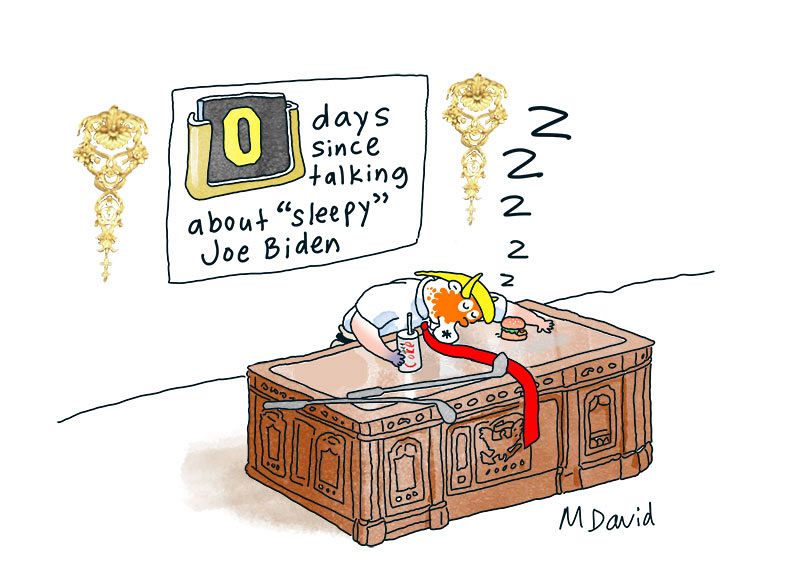 0 days
since
talking
about "sleepy"
Joe Biden
Z
Z
Z
z
z
Coke
M David